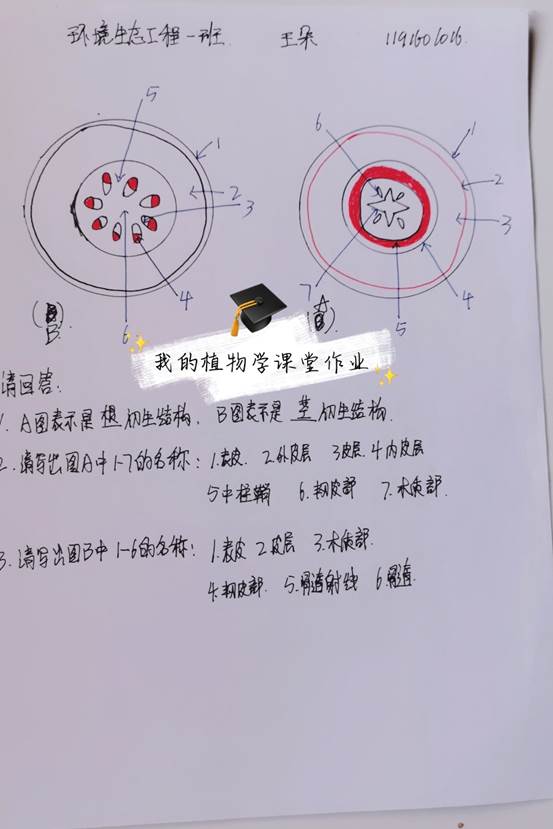 环境生态工程一班 王朵 1191601016
5
1
2
3
4
6
6
1
2
3
4
5
7
(B)
A
我的植物学课堂作业
请回答:
1. A图表示是根初生结构, B图表示是茎初生结构.
2. 请写出图A中1-7的名称: 1.表皮 2.外皮层 3皮层. 4内皮层
5中柱鞘 6.韧皮部 7.木质部.
3. 请写出图B中1-6的名称: 1.表皮 2皮层 3.木质部.
4.韧皮部. 5.髓射线 6髓.